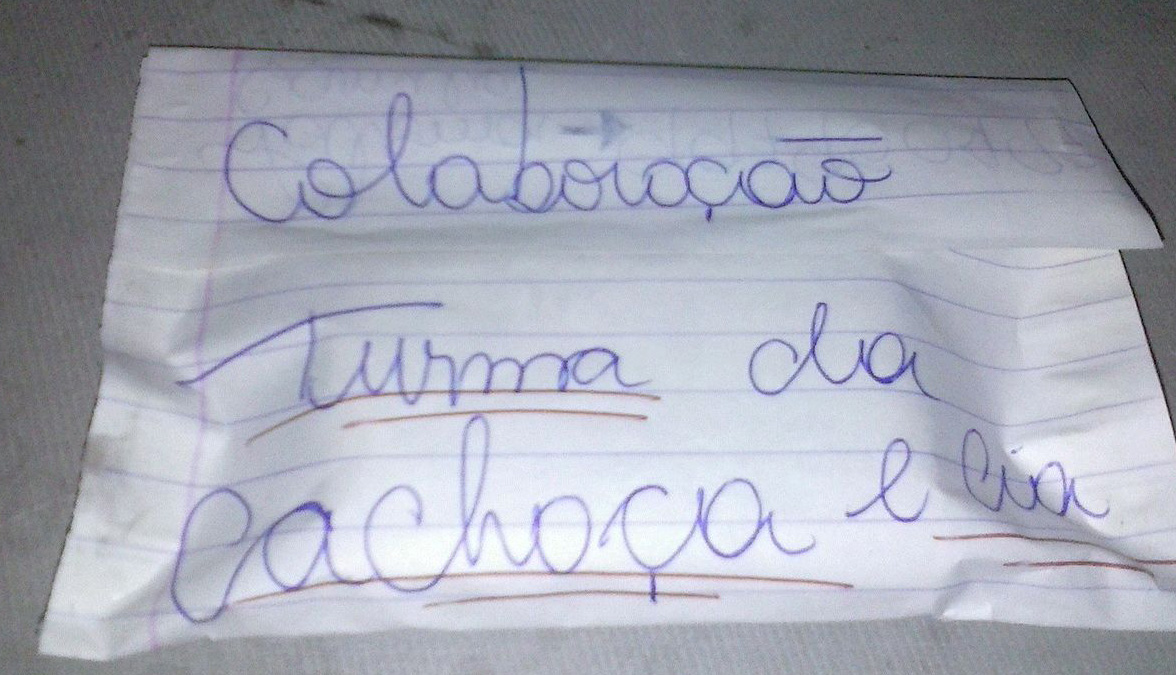 Colaboração
Turma da
Cachaça e Cia